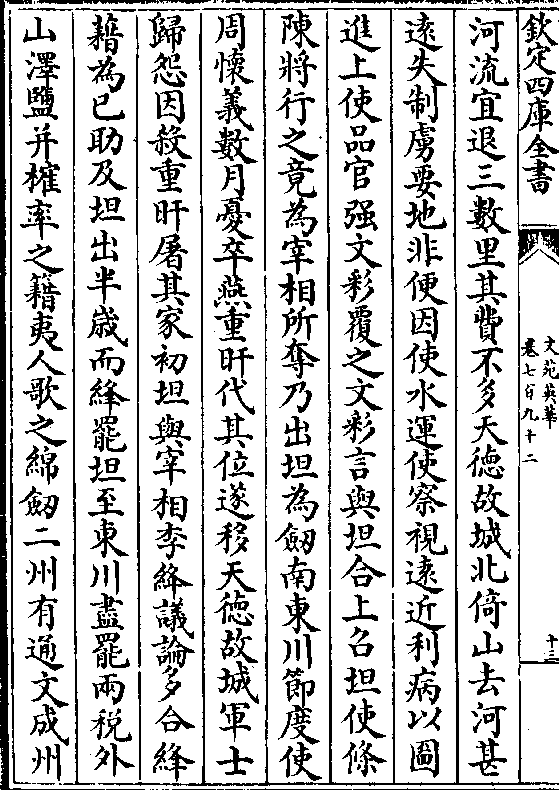 欽定四庫全書
文苑英華
卷七百九十二
十三
河流宜退三數里其費不多天德故城北倚山去河甚
遠失制虜要地非便因使水運使察視遠近利病以圖
進上使品官强文彩覆之文彩言與坦合上召坦使條
陳將行之竟為宰相所奪乃出坦為劒南東川節度使
周懷義數月憂卒燕重旰代其位遂移天德故城軍士
歸怨因殺重旰屠其家初坦與宰相李絳議論多合絳
藉為已助及坦出半歳而絳罷坦至東川盡罷兩税外
山澤鹽井㩁率之籍夷人歌之綿劒二州有通文成州